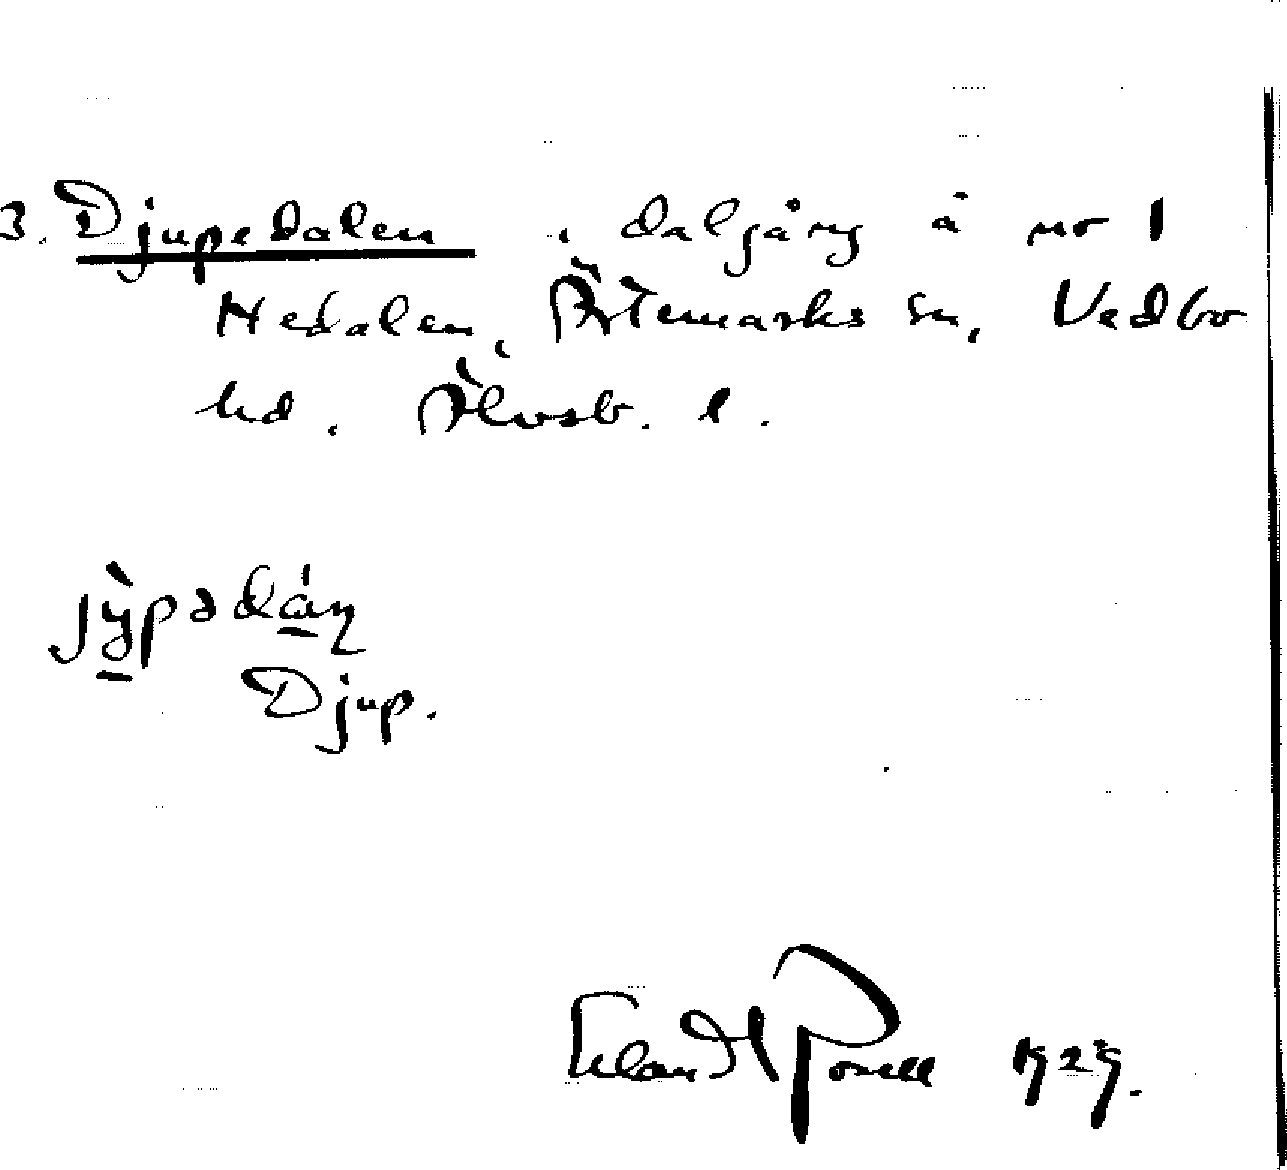 3. Djupedalen, dalgång å nr 1
Nedalen, Ärtemarks sn, Vedbo
hd, Älvsb. l.
jỳ̲pədá̲ɳ
Djup.
1929.